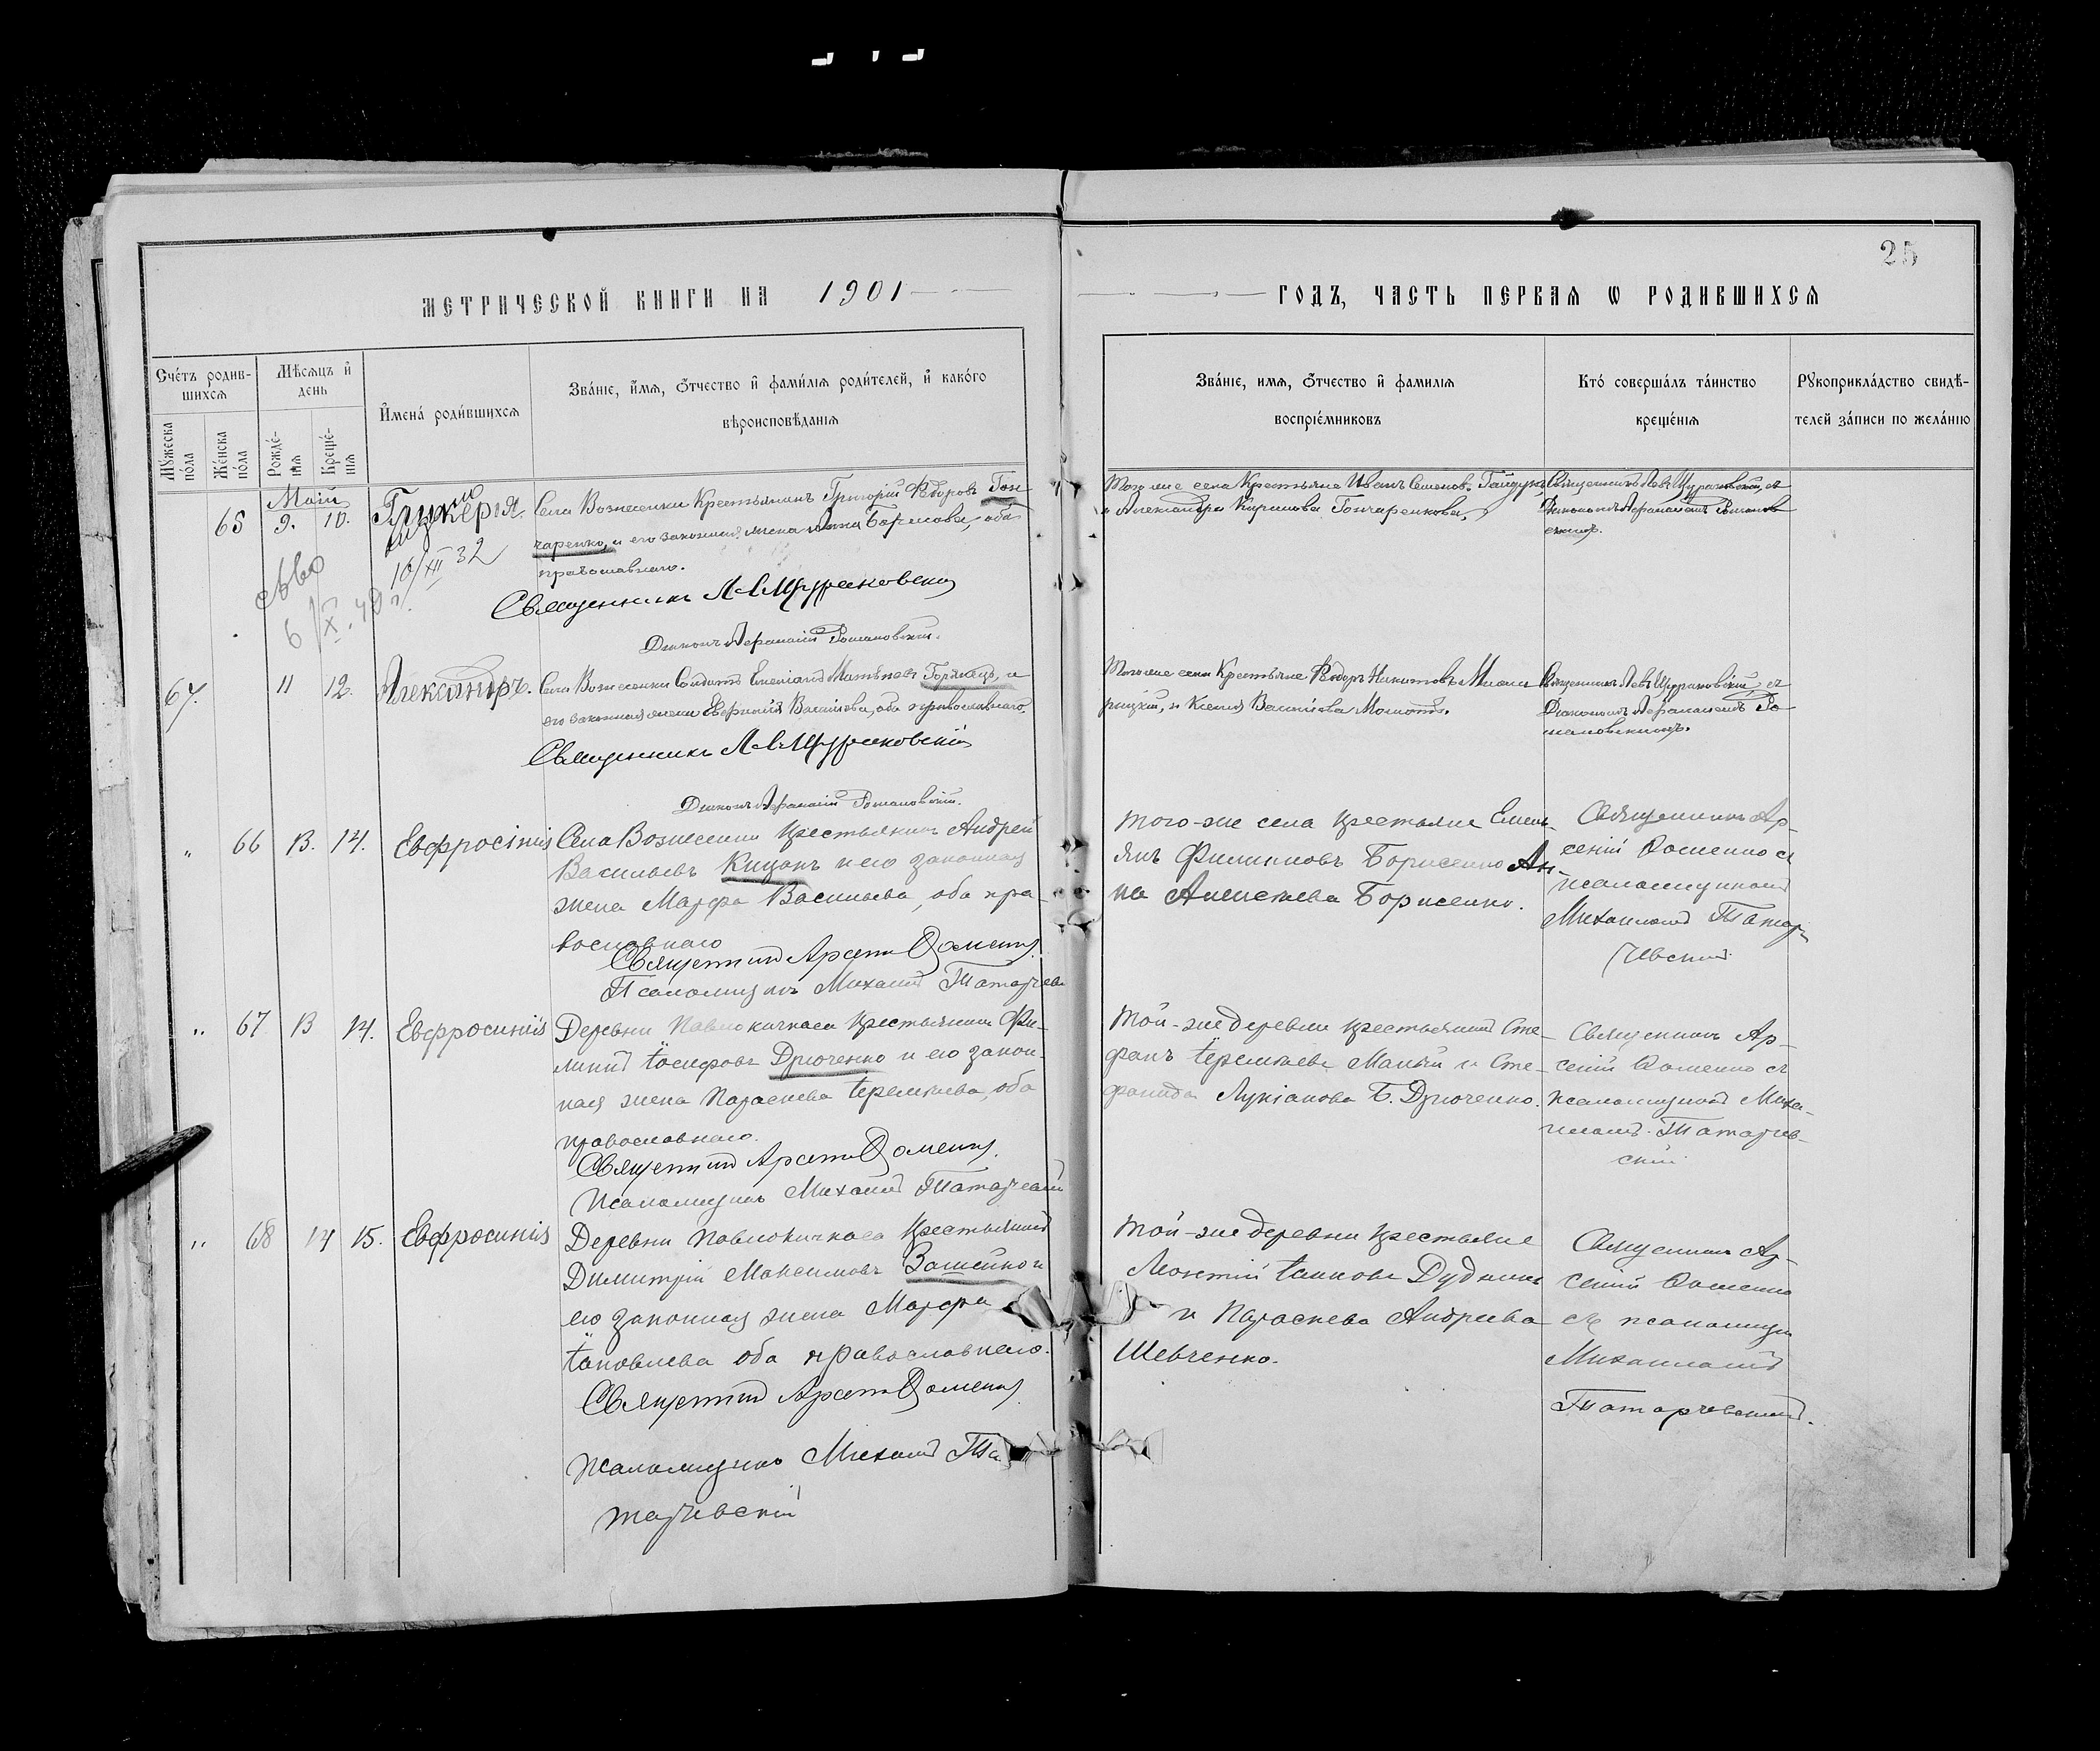 25
МЕТРИЧЕСКОЙ КНИГИ НА 1901
ГОДЪ, ЧАСТЬ ПЕРВАЯ Ѡ РОДИВШИХСЯ
Счéтъ родив-
шихсѧ
Мꙋ́жеска
пóла
Жéнска
пóла
Мѣ́сѧцъ и҆
день
Рождé-
нїѧ
Крещé-
нїѧ
И҆мена́ роди́вшихсѧ
Зва́нїе, и҆́мѧ, ѻ҆́тчество и҆ фами́лїѧ роди́телей, и҆ како́гѡ
вѣроисповѣ́данїѧ
Зва́нїе, имѧ, ѻ҆́тчество и҆ фамилїѧ
воспрїéмниковъ
Кто́ соверша́лъ та́инство
крещéнїѧ
Рꙋкоприкла́дство свидѣ́-
телей за́писи по жела́нїю
Май
65 9. 10. Гликерія.
10/XII 32
6/X
Села Вознесенки Крестьянинъ Григорій Ѳедоровъ Гон
чаренко, и его законная жена Анна Борисова, оба
православнаго.
Священникъ Левъ Щураковскій
Діаконъ Афанасій Романовскій.
Того же села Крестьяне Иванъ Семеновъ Гайдукъ,
и Александра Карпова Гончаренкова,
Священникъ Левъ Щураковскій, съ
Діакономъ Афанасіемъ Романов
скимъ.
67. 11 12. Александръ.
Села Вознесенки Солдатъ Емеліанъ Матѣевъ Горянецъ, и
его законная жена Евфимія Васильева, оба православнаго.
Священникъ Левъ Щураковскій
Діаконъ Афанасій Романовскій.
Того же села Крестьяне Ѳедоръ Никитовъ
и Ксенія Васильева
Священникъ Левъ Щураковскій, съ
Діакономъ Афанасіемъ Ро
мановскимъ.
" 66 13. 14. Евфросінія
Села Вознесенки крестьянинъ Андрей
Васильевъ Кицанъ и его законная
жена Марфа Васильева, оба пра-
вославнаго
Священникъ Арсеній Фоменко
Псаломщикъ Михаилъ Татарчев
Того-же села крестьяне Емель-
янъ Филипповъ Борисенко Ан-
на Алексѣева Борисенко.
Священникъ Ар-
сеній Фоменко съ
псаломщикомъ
Михаиломъ Татар
чевский
" 67 13 14. Евфросинія
Деревни Павлокичкаса крестьянинъ Фи-
липпъ Іосифовъ Дрюченко и его закон-
ная жена Параскева Іереміева, оба
православнаго.
Священникъ Арсеній Фоменко.
Псаломщикъ Михаилъ Татарчевскій
Той-же деревни крестьянинъ Сте-
фанъ Іереміевъ Малый и Сте-
фанида Лукіанова Б. Дрюченко.
Священникъ Ар-
сеній Фоменко съ
псаломщикомъ Миха-
иломъ Татарчев-
скій
" 68 14 15. Евфросинія
Деревни Павлокичкаса крестьянинъ
Димитрій Максимовъ Зашейко и
его законная жена Марфа
Іаковлева оба православнаго.
Священникъ Арсеній Фоменко
псаломщикъ Михаилъ Та
тарчевскій
Той-же деревни крестьяне
Леонтій Іаковъ Дудникъ
и Параскева Андреева
Шевченко.
Священникъ Ар-
сеній Фоменко
съ псаломщи
Михаиломъ
Татарчевскимъ.